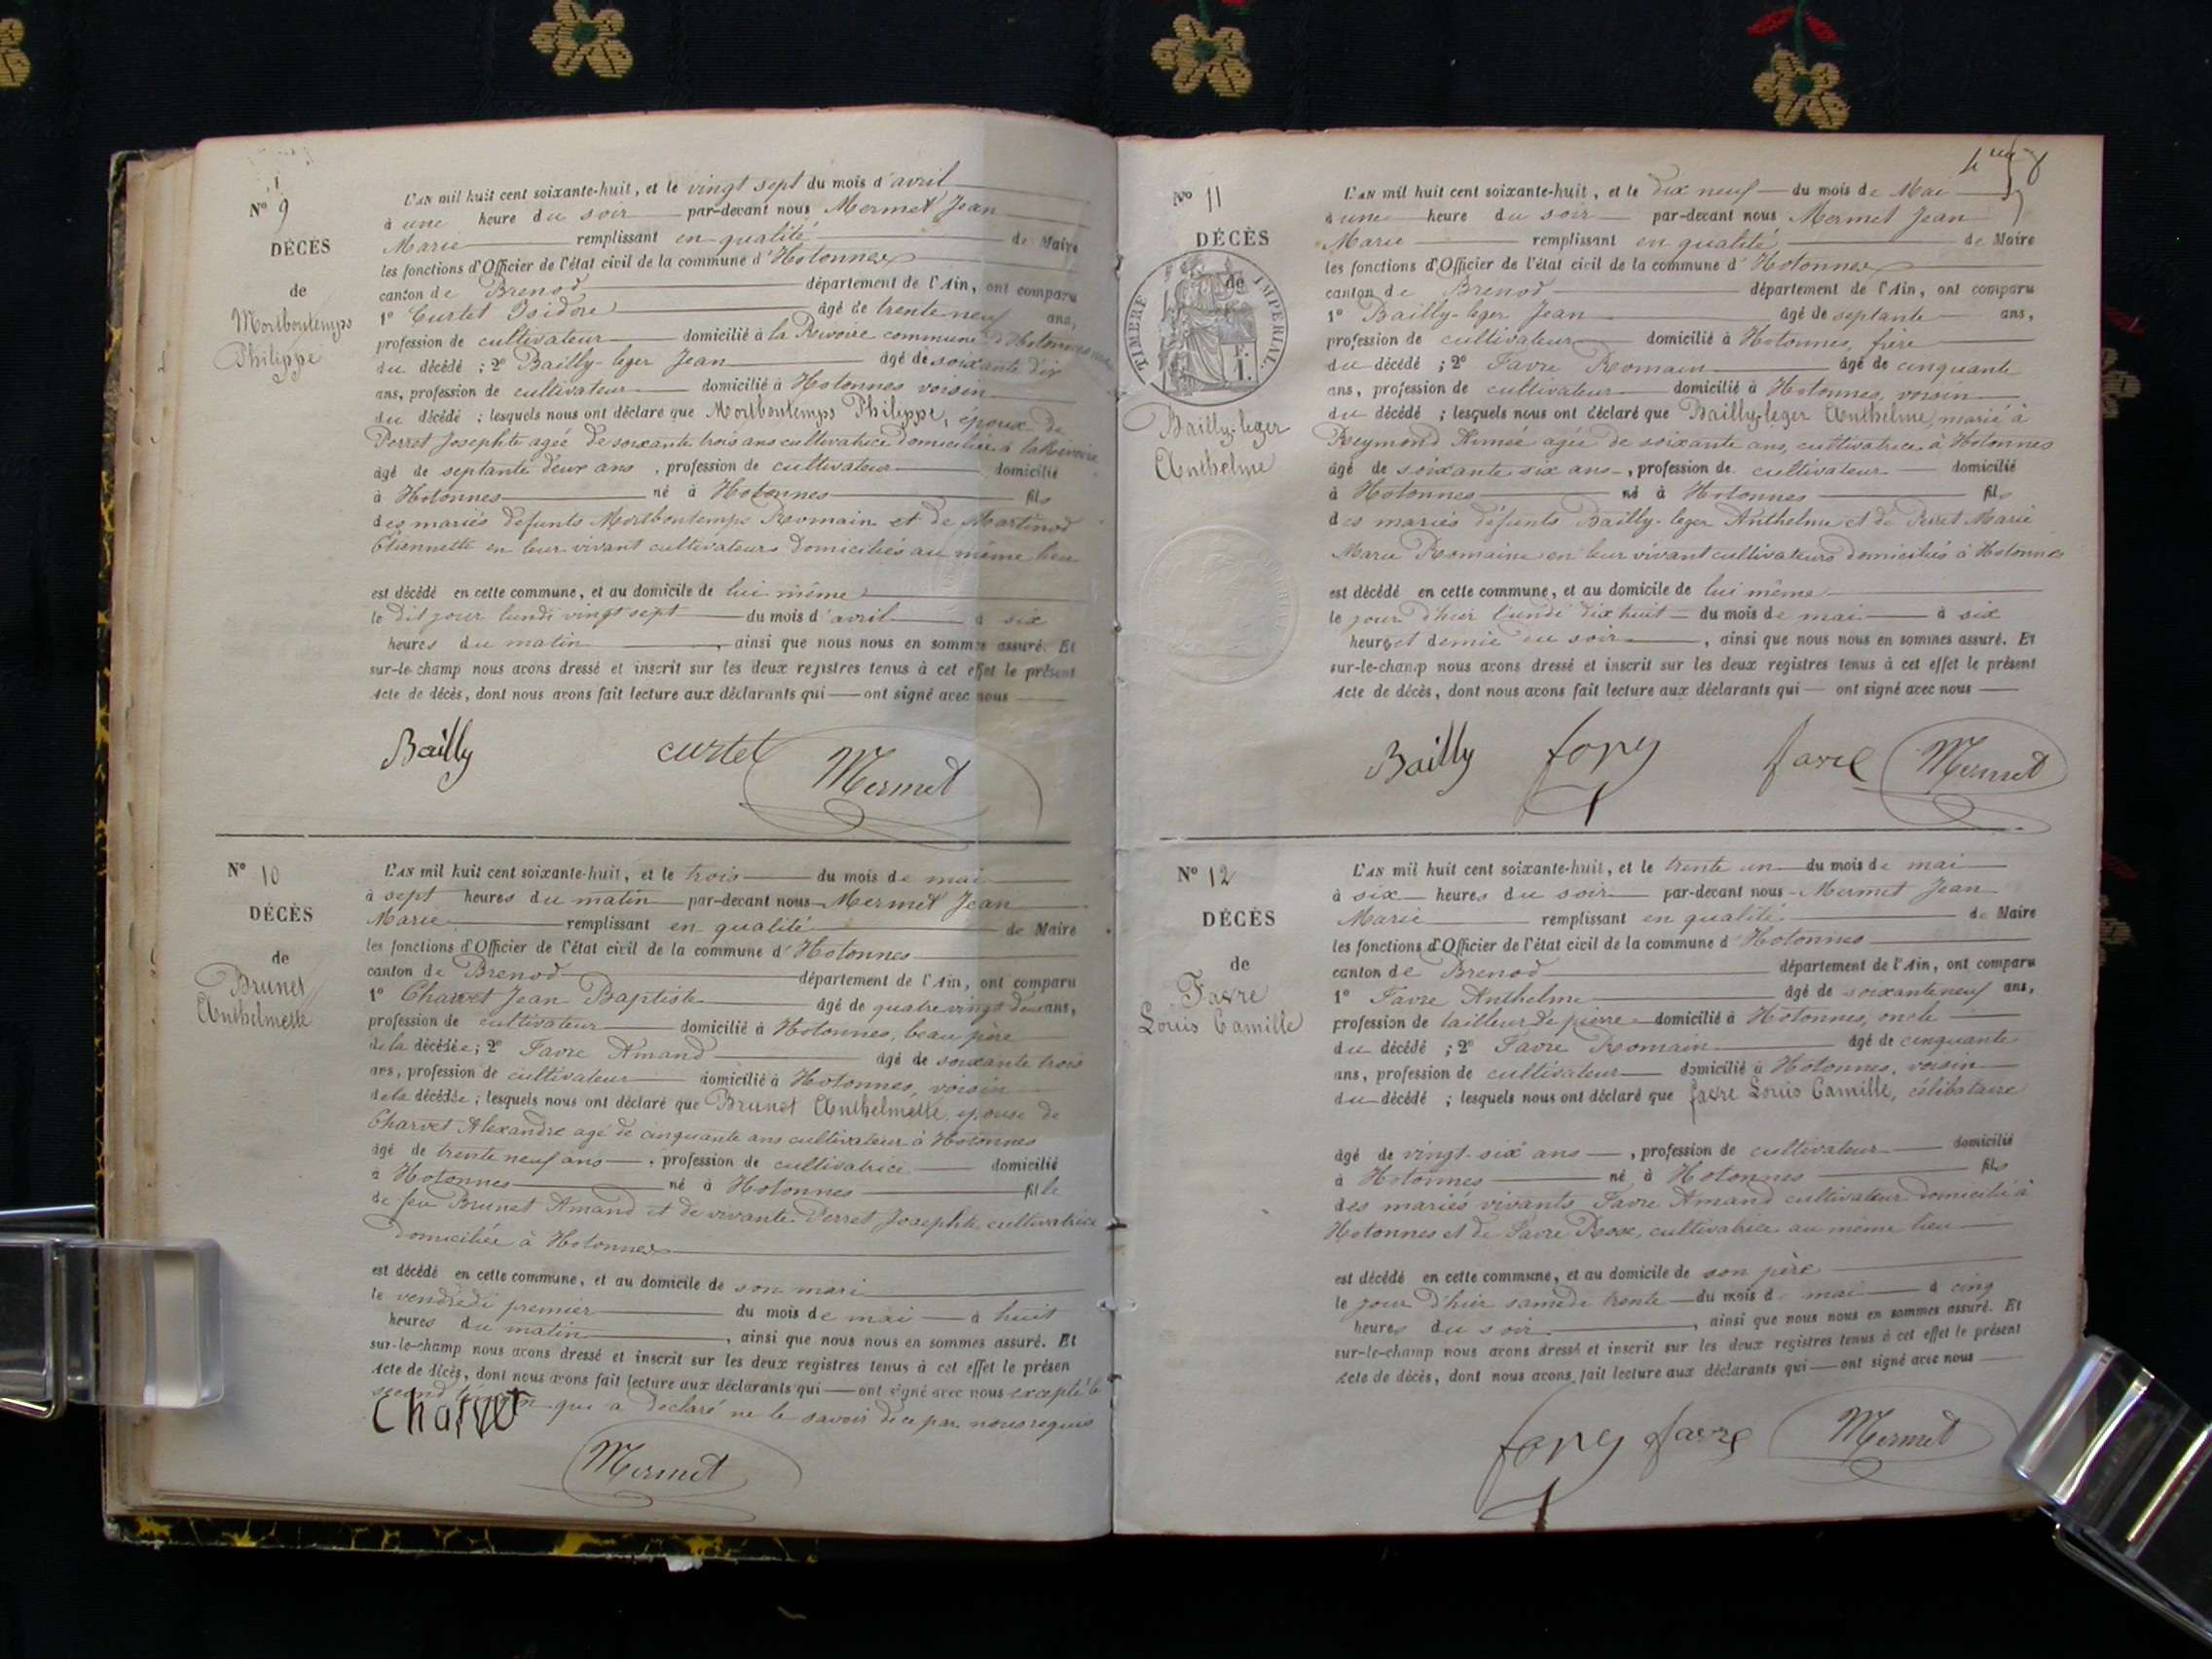 N° 9
DÉCÈS
de
Mortboutemps
Philippe
L'AN mil huit cent soixante-huit, et le vingt sept du mois d'avril
à une heure du soir par-devant nous Mermet Jean
Marie remplissant en qualité de Maire
les fonctions d'Officier de l'état civil de la commune d'Hotonnes
canton de Brenod département de l'Ain, ont comparu
1° Curtet Isidore âgé de trente neuf ans,
profession de cultivateur domicilié à la Rivoire commune d'Hotonnes
du décédé ; 2° Bailly-leger Jean âgé de soixante dix
ans, profession de cultivateur domicilié à Hotonnes voisin
du décédé ; lesquels nous ont déclaré que Mortboutemps Philippe, époux de
Perret Josephte agée de soixante trois ans cultivatrice domiciliée à la Rivoire
âgé de septante deux ans, profession de cultivateur domicilié
à Hotonnes né à Hotonnes fils
des mariés défunts Mortboutemps Romain et de Martinod
Etiennette en leur vivant cultivateurs domiciliés au même lieu
est décédé en cette commune, et au domicile de lui même
le dit jour lundi vingt sept du mois d'avril à six
heures du matin, ainsi que nous nous en sommes assuré. Et
sur-le-champ nous avons dressé et inscrit sur les deux registres tenus à cet effet le présent
Acte de décès, dont nous avons fait lecture aux déclarants qui ont signé avec nous
Bailly curtet Mermet
N° 10
DÉCÈS
de
Brunet
Anthelmette
L'AN mil huit cent soixante-huit, et le trois du mois de mai
à sept heures du matin par-devant nous Mermet Jean
Marie remplissant en qualité de Maire
les fonctions d'Officier de l'état civil de la commune d'Hotonnes
canton de Brenod département de l'Ain, ont comparu
1° Charvet Jean Baptiste âgé de quatre vingt deux ans,
profession de cultivateur domicilié à Hotonnes, beau père
de la décédée ; 2° Favre Amand âgé de soixante trois
ans, profession de cultivateur domicilié à Hotonnes, voisin
de la décédée ; lesquels nous ont déclaré que Brunet Anthelmette, epouse de
Charvet Alexandre agé de cinquante ans cultivateur à Hotonnes
âgé de trente neuf ans, profession de cultivatrice domicilié
à Hotonnes né à Hotonnes fille
de feu Brunet Amand et de vivante Perret Josephte cultivatrice
domiciliée à Hotonnes
est décédé en cette commune, et au domicile de son mari
le vendredi premier du mois de mai à huit
heures du matin, ainsi que nous nous en sommes assuré. Et
sur-le-champ nous avons dressé et inscrit sur les deux registres tenus à cet effet le présen
Acte de décès, dont nous avons fait lecture aux déclarants qui ont signé avec nous excepté le
second témoin que a declaré ne le savoir de ce par nous requis
Charvet
Mermet
N° 11
DÉCÈS
de
TIMBRE IMPÉRIAL
Bailly-leger
Anthelme
L'AN mil huit cent soixante-huit, et le dix neuf du mois de Mai
à une heure du soir par-devant nous Mermet Jean
Marie remplissant en qualité de Maire
les fonctions d'Officier de l'état civil de la commune d'Hotonnes
canton de Brenod département de l'Ain, ont comparu
1° Bailly-leger Jean âgé de septante ans,
profession de cultivateur domicilié à Hotonnes, frère
du décédé ; 2° Favre Romain âgé de cinquante
ans, profession de cultivateur domicilié à Hotonnes, voisin
du décédé ; lesquels nous ont déclaré que Bailly-leger Anthelme, marié à
Reymond Aimée agée de soixante ans, cultivatrice à Hotonnes
âgé de soixante six ans, profession de cultivateur domicilié
à Hotonnes né à Hotonnes fils
des mariés défunts Bailly-leger Anthelme et de Perret Marie
Marie Romaine en leur vivant cultivateurs domiciliés à Hotonnes
est décédé en cette commune, et au domicile de lui même
le jour d'hier lundi dix huit du mois de mai à six
heures et demie du soir, ainsi que nous nous en sommes assuré. Et
sur-le-champ nous avons dressé et inscrit sur les deux registres tenus à cet effet le présent
Acte de décès, dont nous avons fait lecture aux déclarants qui ont signé avec nous
Bailly favre Mermet
N° 12
DÉCÈS
de
Favre
Louis Camille
L'AN mil huit cent soixante-huit, et le trente un du mois de mai
à six heures du soir par-devant nous Mermet Jean
Marie remplissant en qualité de Maire
les fonctions d'Officier de l'état civil de la commune d'Hotonnes
canton de Brenod département de l'Ain, ont comparu
1° Favre Anthelme âgé de soixante neuf ans,
profession de tailleur de pierre domicilié à Hotonnes, oncle
du décédé ; 2° Favre Romain âgé de cinquante
ans, profession de cultivateur domicilié à Hotonnes, voisin
du décédé ; lesquels nous ont déclaré que favre Louis Camille, célibataire
âgé de vingt-six ans, profession de cultivateur domicilié
à Hotonnes né à Hotonnes fils
des mariés vivants Favre Amand cultivateur domicilié à
Hotonnes et de Favre Rose, cultivatrice au même lieu
est décédé en cette commune, et au domicile de son père
le jour d'hier samedi trente du mois de mai à cinq
heures du soir, ainsi que nous nous en sommes assuré. Et
sur-le-champ nous avons dressé et inscrit sur les deux registres tenus à cet effet le présent
Acte de décès, dont nous avons fait lecture aux déclarants qui ont signé avec nous
favre Mermet